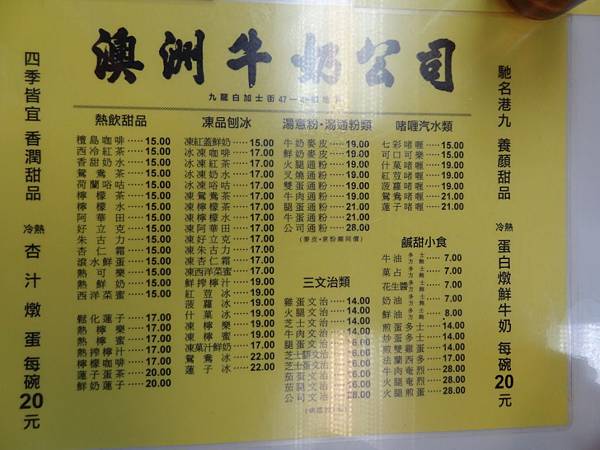 澳洲牛奶公司
九龍白加士街47
四季皆宜 香潤甜品
冷熱 杏汁燉蛋 每碗20元
熱飲甜品
檀島咖啡 15.00
西冷紅茶 15.00
香甜奶水 15.00
鴛鴦茶 15.00
荷蘭哈咕 15.00
檸檬茶 15.00
檸檬水 15.00
阿華田 15.00
好立克 15.00
朱古力 15.00
杏仁霜 15.00
滾水鮮蛋 15.00
熱可樂 15.00
熱鮮奶 15.00
西洋菜蜜 15.00
鬆化蓮子 17.00
熱檸樂 17.00
熱檸蜜 17.00
熱搾檸汁 17.00
檸檬咖啡 17.00
蓮子蛋茶 20.00
鮮奶蓮子 20.00
凍品刨冰
凍紅蓋鮮奶 15.00
冰凍咖啡 17.00
冰凍紅茶 17.00
冰凍奶水 17.00
冰凍哈咕 17.00
凍鴛鴦茶 17.00
凍檸檬水 17.00
凍好立克 17.00
凍朱古力 17.00
凍杏仁霜 17.00
凍西洋菜蜜 17.00
鮮搾檸汁 19.00
紅荳冰 19.00
菠蘿冰 19.00
什菓冰 19.00
凍檸樂 19.00
凍檸蜜 19.00
凍菓汁鮮奶 17.00
鴛鴦冰 22.00
蓮子冰 22.00
湯意粉·湯通粉類
牛奶麥皮 19.00
鮮奶麥皮 19.00
火腿通粉 19.00
叉燒通粉 19.00
雙蛋通粉 19.00
牛肉通粉 21.00
牛蛋通粉 21.00
公司通粉 28.00
(麥皮·意粉同價)
三文治類
雞蛋文治 14.00
火腿文治 14.00
芝士文治 14.00
牛肉文治
腿蛋文治
公司
啫喱汽水類
七彩啫喱 15.00
可口可樂 15.00
什菓啫喱 19.00
紅荳啫喱 19.00
菠蘿啫喱 19.00
鴛鴦啫喱 21.00
蓮子啫喱 21.00
鹹甜小食
牛油 7.00
菓占 7.00
花生醬 7.00
奶油 7.00
鮮油 8.00
煎蛋多士 14.00
炒蛋多士 14.00
煎雙蛋 14.00
法蘭西多 17.00
牛肉奄烈 28.00
火腿奄烈 28.00
火腿煎蛋 28.00
馳名港九 養顏甜品
冷熱 蛋白燉鮮牛奶 每碗20元